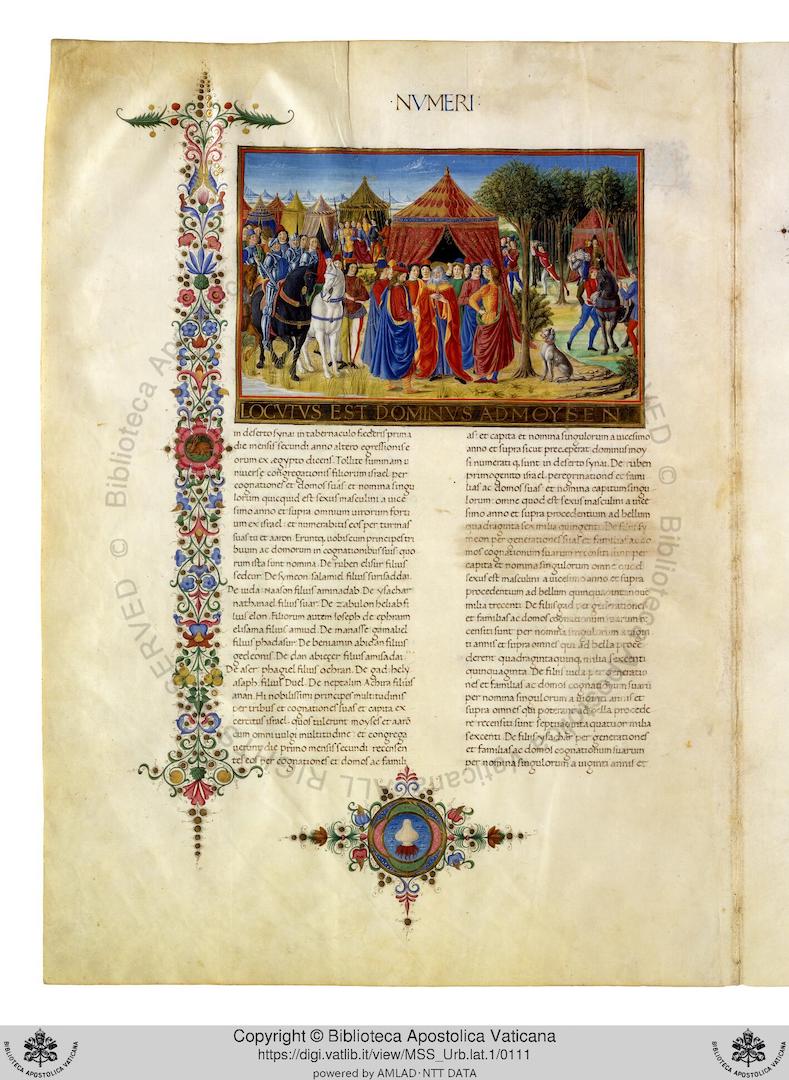 ·NVMERI·
LOCVTVS EST DOMINVS AD MOYSEN
in deserto synai in tabernaculo foederis prima
die mensis secundi anno altero egressionis e
orum ex ægypto dicens. Tollite summam u
niuerse congregationis filiorum israel per
cognationes et domos suas et nomina singu
lorum quicquid est sexus masculini a uice
simo anno et supra omnium uirorum forti
um ex israel: et numerabitis eos per turmas
suas tu et aaron. Eruntq, uobiscum principes tri
buum ac domorum in cognationibus suis quo
rum ista sunt nomina. De ruben elisur filius
sedeur. De symeon salamiel filius surisaddai.
De iuda: Naason filius aminadab. De ysachar
nathanael filius suar. De zabulon heliab fi
lius elon. Filiorum autem ioseph de ephraim
elisama filius amiud. De manasse gamaliel
filius phadasur. De beniamin abidan filius
gedeonis. De dan abiezer filius amisadai.
De aser phagiel filius ochran. De gad hely
asaph filius Duel. De neptalim Achira filius
anan. Hi nobilissimi principes multitudinis
per tribus et cognationes suas et capita ex
ercitus israel. quos tulerunt moyses et aarō
cum omni uulgi multitudine: et congrega
uerunt die primo mensis secundi recensen
tes eos per cognationes et domos ac famili
as et capita et nomina singulorum a uicesimo
anno et supra sicut preceperat dominus moy
si numerati q, sunt in deserto synai. De ruben
primogenito israel. per generationes et fami
lias ac domos suas et nomina capitum singu
lorum: omne quod est sexus masculini a uice
simo anno et supra procedentium ad bellum
quadraginta sex milia quingenti. De filiis sy
meon per generationes suas et familias ac do
mos cognationum suarum recensiti sunt per
capita et nomina singulorum omne quod
sexus est masculini a uicesimo anno et supra
procedentium ad bellum quinquaginta nouē
milia trecenti. De filiis gad per generationes
et familias ac domos cognationum suarum re
censiti sunt per nomina singulorum a uigin
ti annis et supra omnes qui ad bella proce
derent quadraginta quinq, milia sexcenti
quinquaginta. De filiis iuda per generatio
nes et familias ac domos cognationum suarū
per nomina singulorum a uiginti annis et
supra omnes qui poterant ad bella procede
re recensiti sunt septuaginta quatuor milia
sexcenti. De filiis ysachar per generationes
et familias ac domos cognationum suarum
per nomina singulorum a uiginti annis et
Copyright © Biblioteca Apostolica Vaticana
https://digi.vatlib.it/view/MSS_Urb.lat.1/0111
powered by AMLAD·NTT DATA
BIBLIOTECA APOSTOLICA VATICANA
BIBLIOTECA APOSTOLICA VATICANA
Biblioteca Apostolica Vaticana ALL RIGHTS RESERVED ©